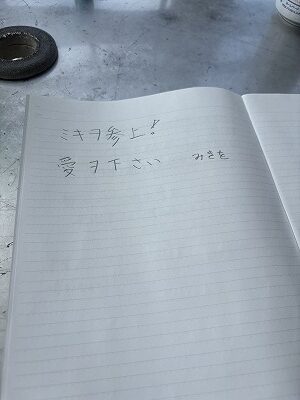 ミキヲ参上!
愛ヲ下さい みきを